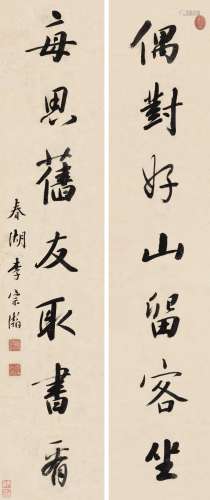 偶對好山留客坐
每思舊友取書看
春湖李宗瀚